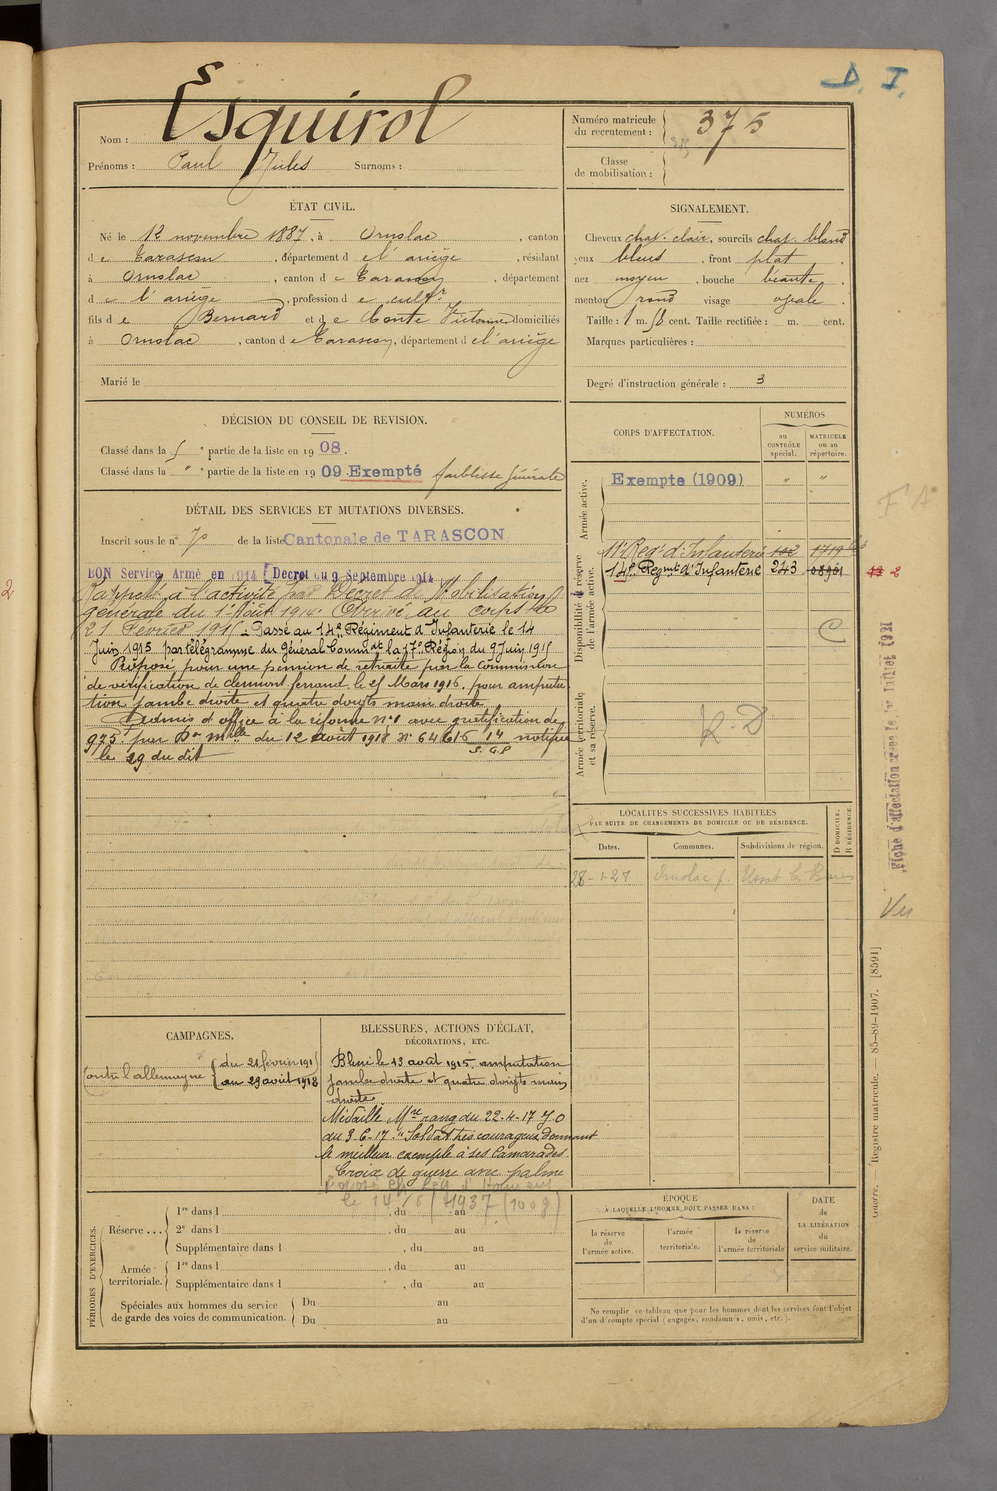 D. I.
Nom : Esquirol
Prénoms : Paul Jules Surnoms :
Numéro matricule du recrutement : 375
Classe de mobilisation :
ÉTAT CIVIL.
Né le 12 novembre 1887, à Ornolac, canton
de Tarascon, département de l'ariège, résidant
à Ornolac, canton de Tarascon, département
de l'ariège, profession de cultr
fils de Bernard et de Conte domiciliés
à Ornolac, canton de Tarascon, département de l'ariège
Marié le
SIGNALEMENT.
Cheveux chat. clair, sourcils chat. blond
yeux bleus, front plat,
nez moyen, bouche béante,
menton rond visage ovale.
Taille : 1 m. 58 cent. Taille rectifiée : m. cent.
Marques particulières :
Degré d'instruction générale : 3
DÉCISION DU CONSEIL DE REVISION.
Classé dans la 5e partie de la liste en 1908.
Classé dans la " e partie de la liste en 1909 Exempté faiblesse générale
DÉTAIL DES SERVICES ET MUTATIONS DIVERSES.
Inscrit sous le n° 70 de la liste Cantonale de TARASCON
BON Service Armé en 1914 (Decret du 9 Septembre 1914
Rappelé à l'activité par Décret de Mobilisation
générale du 1er Août 1914. Arrivé au corps le
21 Février 1915. Passé au 14e Régiment d'Infanterie le 14
Juin 1915 par télégramme du Général Commdt la 17e Région du 9 Juin 1915
Proposé pour une pension de retraite par la Commission
de vérification de clermont ferrand le 25 Mars 1916. pour amputa
tion jambe droite et quatre doigts main droite.
Admis d'office à la réforme n°1 avec gratification de
975f par Don mlle du 12 août 1918 N° 64616 14 notifiée
S.G.P
le 29 du dit
CORPS D'AFFECTATION.
NUMÉROS
au CONTRÔLE spécial.
MATRICULE ou au répertoire.
Armée active.
Exempte (1909) " "
Disponibilité et réserve de l'armée active.
11e Reg. d'Infanterie 1719
14e Regmt d'Infanterie 243 08901
12 2
Armée territoriale et sa réserve.
R. D
F A
C
Fiche d'affectation créée le 1er Juillet 1921
Vu
LOCALITÉS SUCCESSIVES HABITÉES
PAR SUITE DE CHANGEMENTS DE DOMICILE OU DE RÉSIDENCE.
Dates. Communes. Subdivisions de région.
D DOMICILE.
R RÉSIDENCE.
28-1-27 Ornolac p. Ussat les Bains
CAMPAGNES.
Contre l'allemagne du 21 février 191
au 29 août 1918
BLESSURES, ACTIONS D'ÉCLAT,
DÉCORATIONS, ETC.
Blessé le 13 août 1915, amputation
jambe droite et quatre doigts main
droite.
Médaille Mre rang du 22-4-17 J.O
du 3-6-17. "Soldat très courageux donnant
le meilleur exemple à ses camarades.
Croix de guerre avec palme
PÉRIODES D'EXERCICES.
Réserve ... 1re dans l , du au
2e dans l , du au
Supplémentaire dans l , du au
Armée territoriale. 1re dans l , du au
Supplémentaire dans l , du au
Spéciales aux hommes du service de garde des voies de communication. Du au
Du au
ÉPOQUE
À LAQUELLE L'HOMME DOIT PASSER DANS :
la réserve de l'armée active.
l'armée territoriale.
la réserve de l'armée territoriale
DATE DE LA LIBÉRATION du service militaire.
Ne remplir ce tableau que pour les hommes dont les services font l'objet
d'un décompte spécial (engagés, condamnés, omis, etc.).
Guerre. Registre matricule. — 85-89-1907. [8591]
2